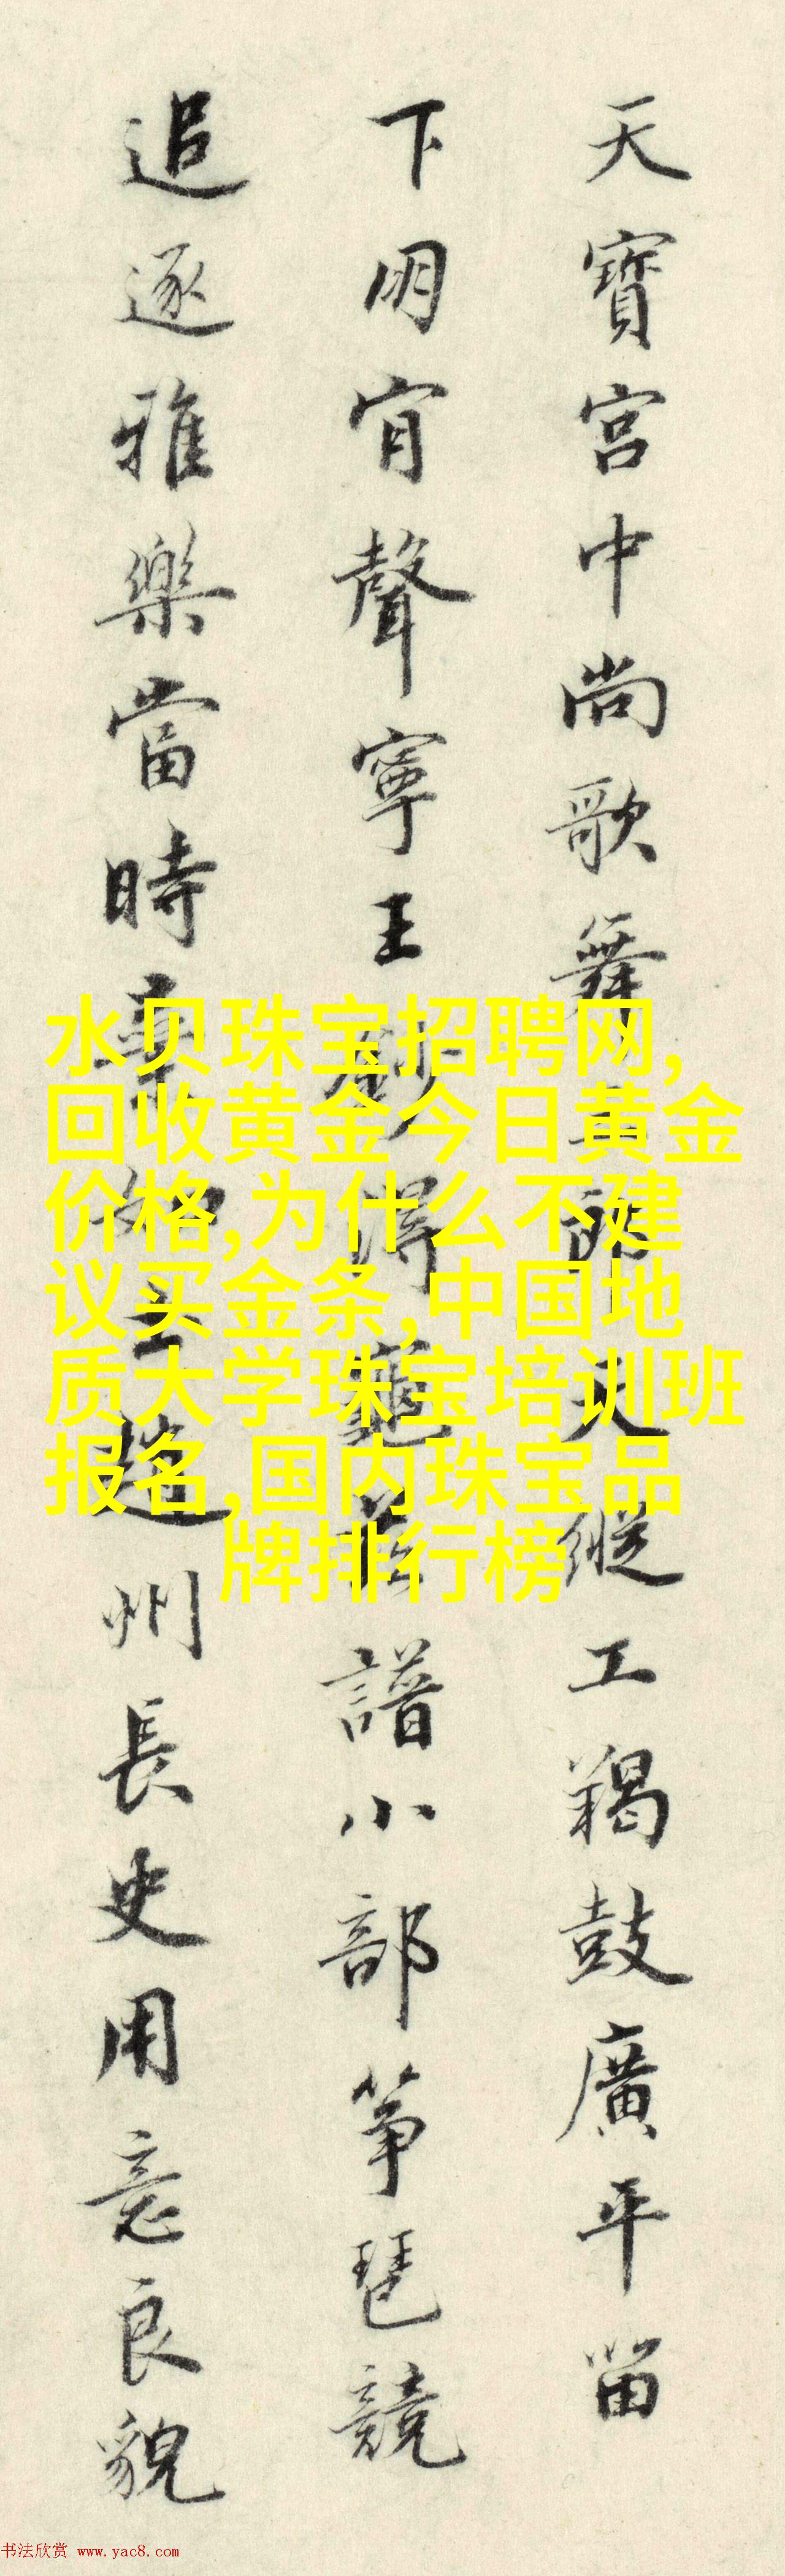 天寶宮中尚歌舞 天縱工羯鼓廣平留
下明宵聲寧王 得龜茲譜小部箏琶競
追逐雅樂當時棄 趙州長史用意良貌
水贝珠宝招聘网,
回收黄金今日黄金
价格,为什么不建
议买金条,中国地
质大学珠宝培训班
报名,国内珠宝品
牌排行榜
书法欣赏 www.yac8.com